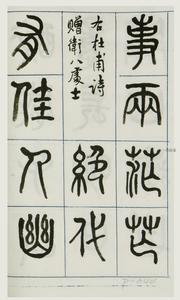 事兩茫茫
右杜甫詩
贈衛八處士
絕代
有佳人幽